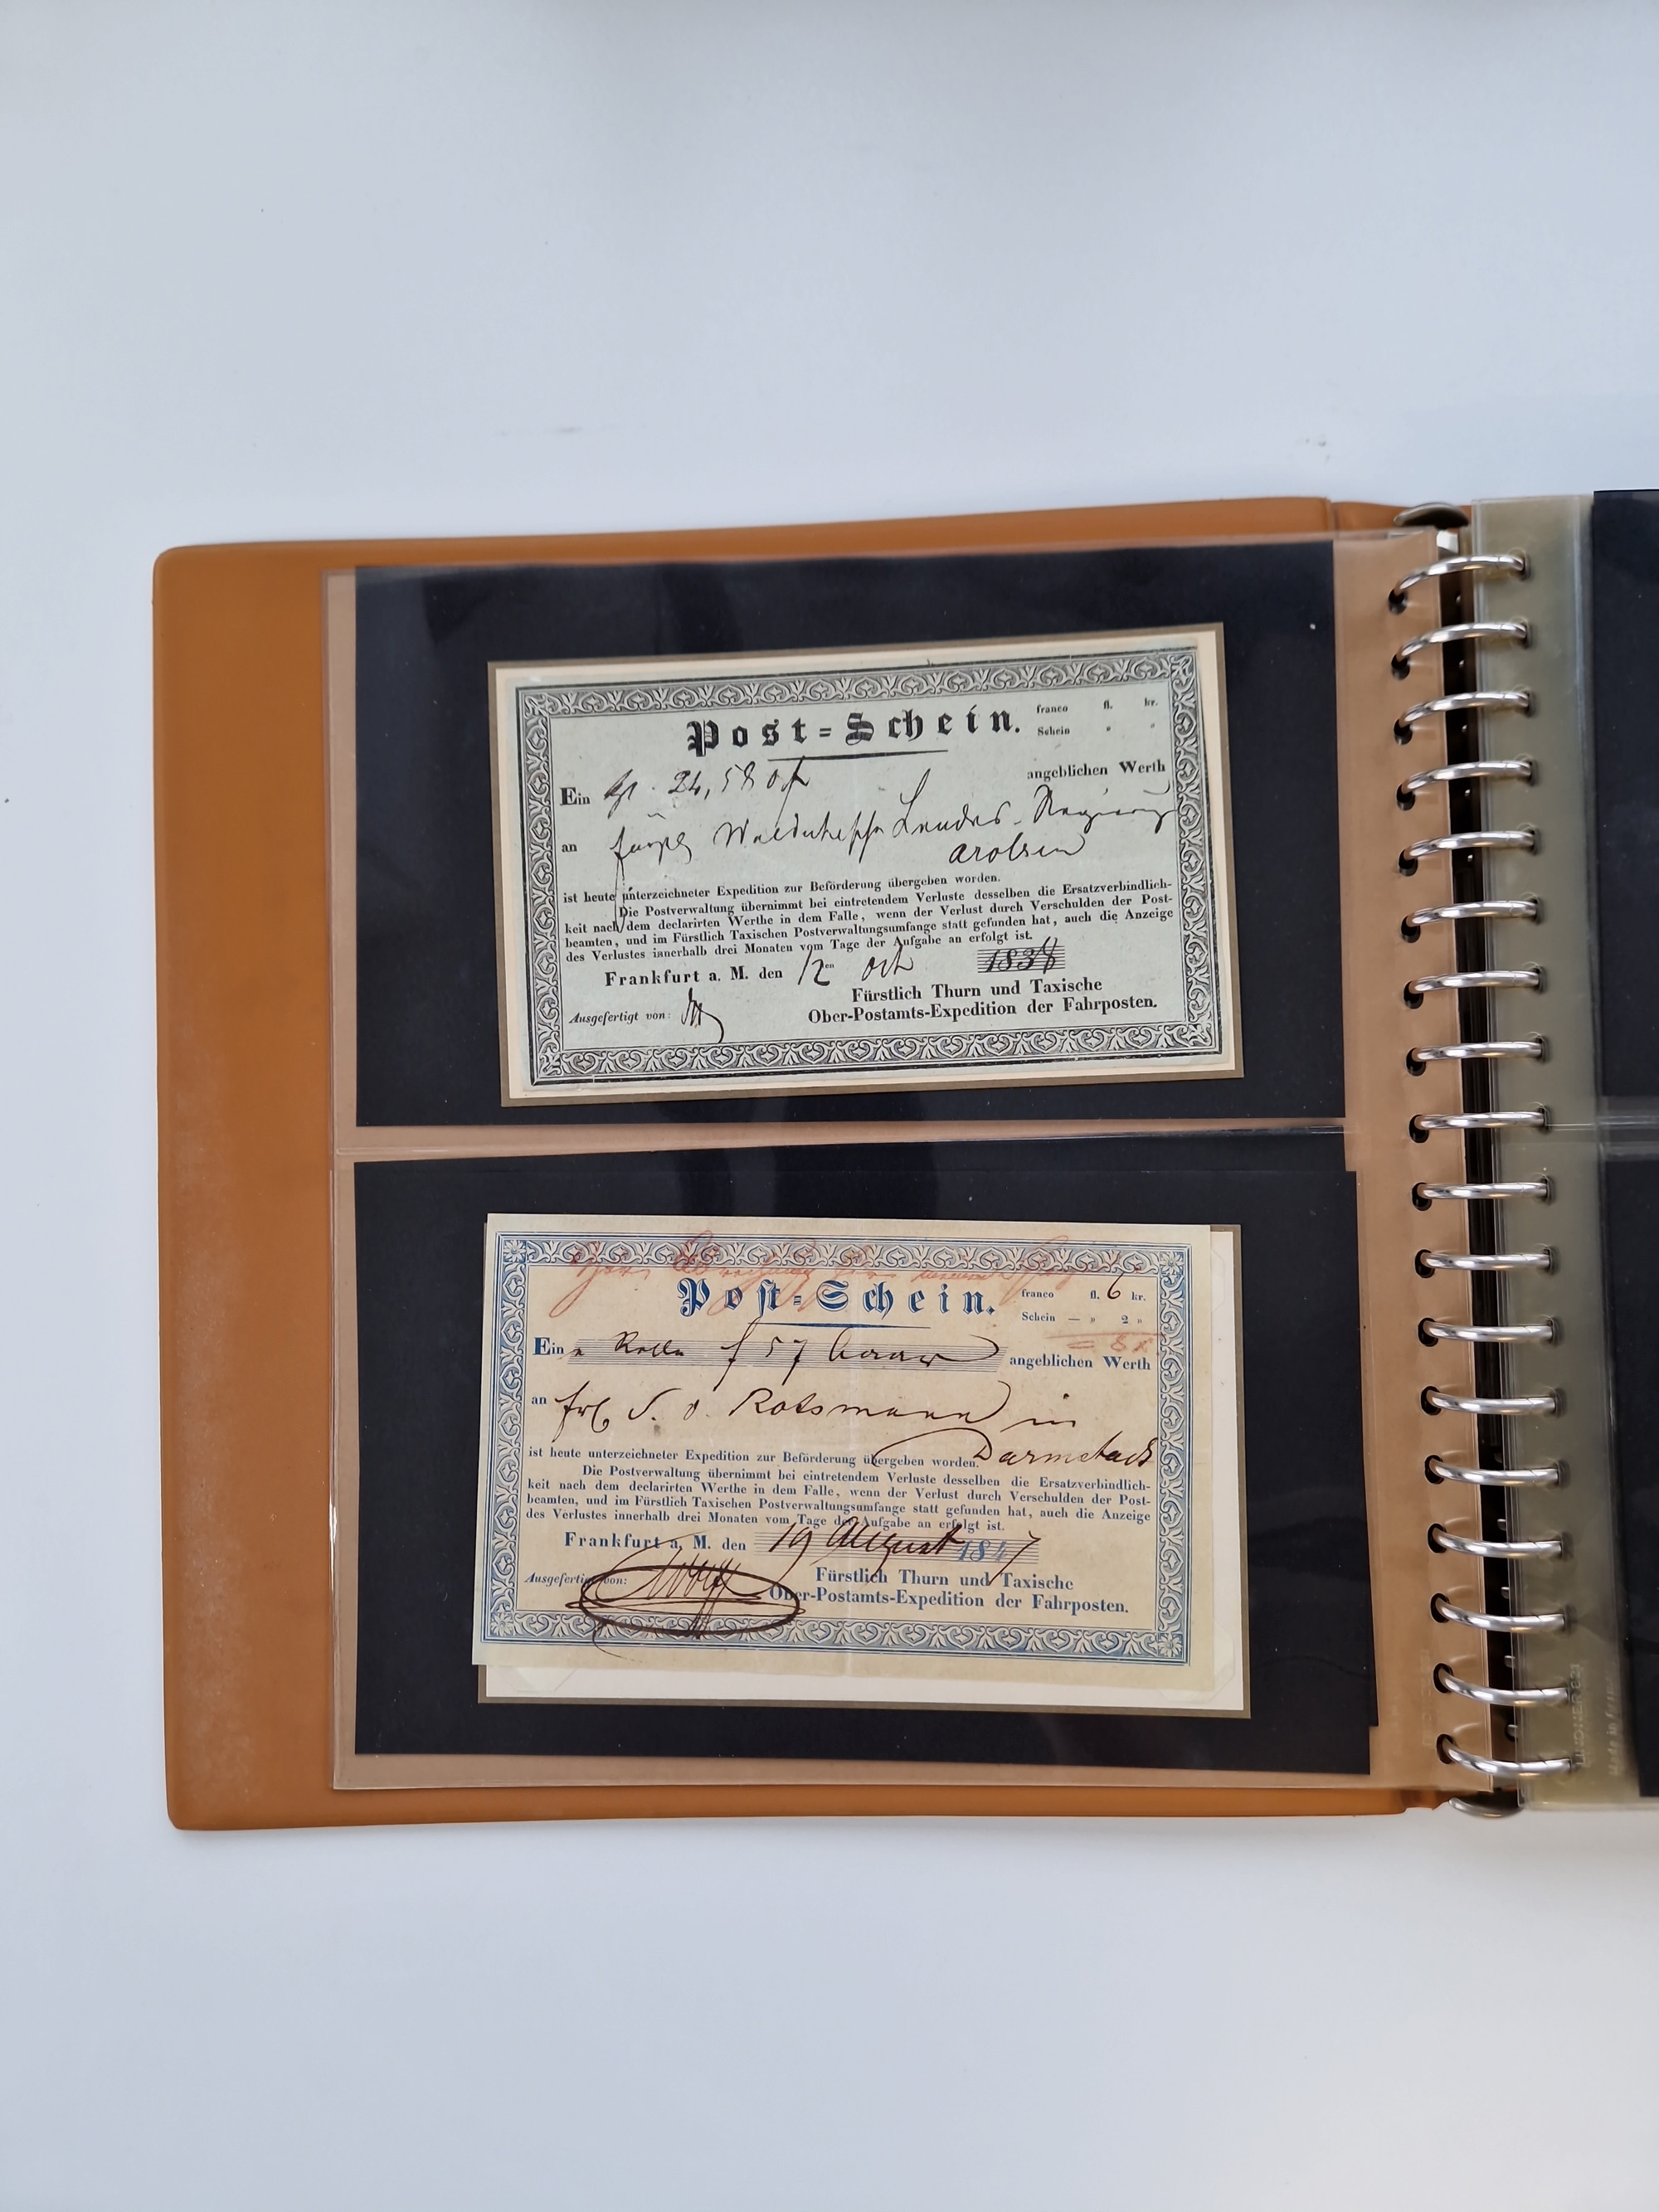 Post=Schein.
franco fl. kr.
Schein " "
Ein 24,58 angeblichen Werth
an Landes-Regierung
Arolsen
ist heute unterzeichneter Expedition zur Beförderung übergeben worden.
Die Postverwaltung übernimmt bei eintretendem Verluste desselben die Ersatzverbindlich-
keit nach dem declarirten Werthe in dem Falle, wenn der Verlust durch Verschulden der Post-
beamten, und im Fürstlich Taxischen Postverwaltungsumfange statt gefunden hat, auch die Anzeige
des Verlustes innerhalb drei Monaten vom Tage der Aufgabe an erfolgt ist.
Frankfurt a. M. den 12 en Oct 1838
Fürstlich Thurn und Taxische
Ausgefertigt von: Ober-Postamts-Expedition der Fahrposten.
Post=Schein.
franco fl. 6 kr.
Schein — " 2 "
= 8 x
Ein e Rolle f 57 angeblichen Werth
an S. v. Rotsmann in
Darmstadt
ist heute unterzeichneter Expedition zur Beförderung übergeben worden.
Die Postverwaltung übernimmt bei eintretendem Verluste desselben die Ersatzverbindlich-
keit nach dem declarirten Werthe in dem Falle, wenn der Verlust durch Verschulden der Post-
beamten, und im Fürstlich Taxischen Postverwaltungsumfange statt gefunden hat, auch die Anzeige
des Verlustes innerhalb drei Monaten vom Tage der Aufgabe an erfolgt ist.
Frankfurt a. M. den 19 August 1847
Fürstlich Thurn und Taxische
Ausgefertigt von: Ober-Postamts-Expedition der Fahrposten.